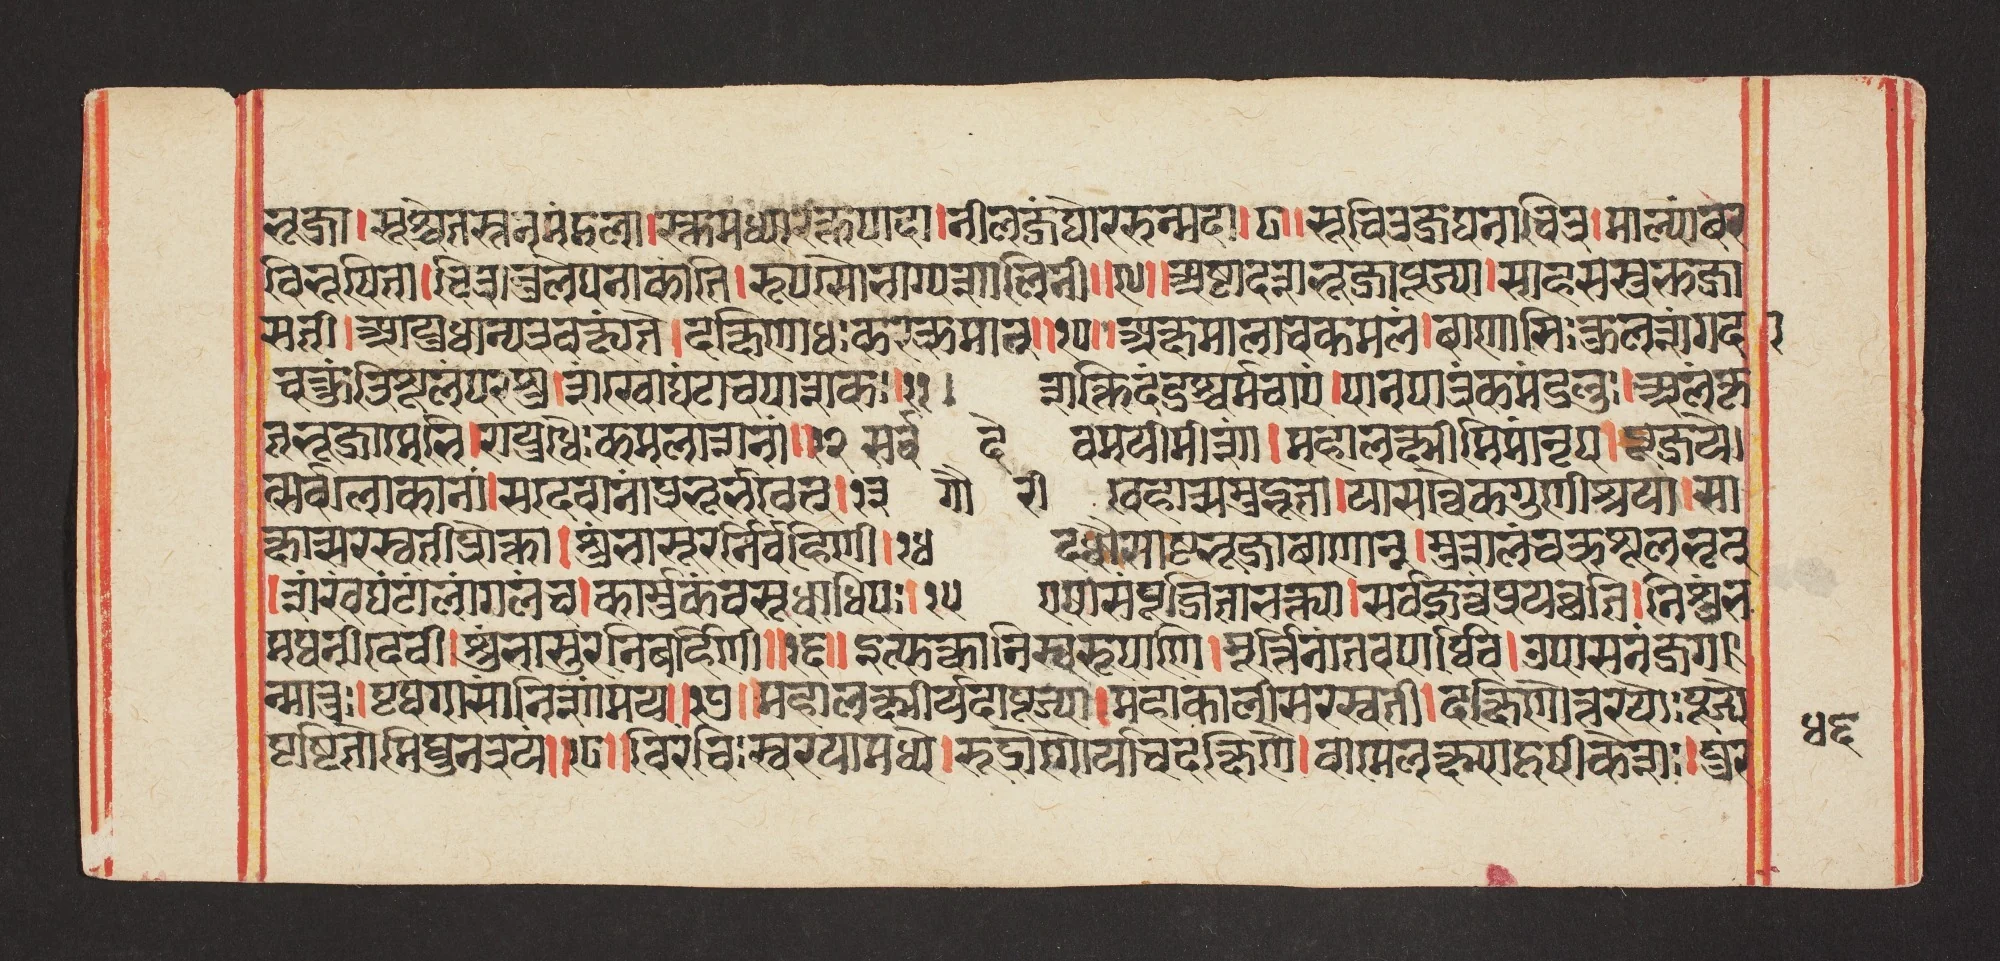 भूजा । सूश्वेतस्तनमंडला । रक्तमध्यारक्तपादा । नीलजंघोररुन्मदा । ८ ॥ सूचित्रजघनाचित्र । माल्यांबर
विभूषिता । चित्रानुलेपनाकांति । रूपसौभाग्यशालिनी ॥ ९ ॥ अष्टादशभूजापूज्या । साहसस्रभुजा
सती । आयुधान्यत्रवक्ष्यंते । दक्षिणाधःकरक्रमात् ॥ १० ॥ अक्षमालाचकमलं । बाणोसिःकुलशंगदा
चक्रंत्रिशूलंपरशु । शंखोघंटाचपाशकः । ११ । शक्तिदंडश्चर्मचापं । पानपात्रंकमंडलुः । अलंकृ
तभूजामेभि । रायुधैःकमलाशनां ॥ १२ सर्वदेवमयीमीशां । महालक्ष्मीमिमांनृप । पूजये
त्सर्वलोकानां । सदेवानांप्रभूर्भवेत् । १३ गौरीदेहात्समुद्भूता । यासत्वैकगुणाश्रया । सा
क्षात्सरस्वतीप्रोक्ता । शुंभासूरनिर्बर्हिणी । १४ दधौसाष्टभूजाबाणान् । मुशलंचक्रशूलभृत्
। शंखघंटांलांगलंच । कार्मुकंवसूधाधिपः । १५ एषासंपूजिताभक्त्या । सर्वज्ञत्वप्रयच्छति । निशुंभ
मथनीदेवी । शुंभासुरनिबर्हिणी ॥ १६ ॥ इत्युक्तानिस्वरूपाणि । मूर्त्तिनांतवपार्थिव । उपासनंजग
न्मातुः । पृथगासांनिशामय ॥ १७ ॥ महालक्ष्मीर्यदापूज्या । महाकालीसरस्वती । दक्षिणोत्तरयोःपूज्ये
पृष्टितोमिथुनत्रयं ॥ १८ ॥ विरंचिःस्वरयामध्ये । रूद्रोगौर्याचदक्षिणे । वामेलक्ष्म्याहृषीकेशः । पुर
४६